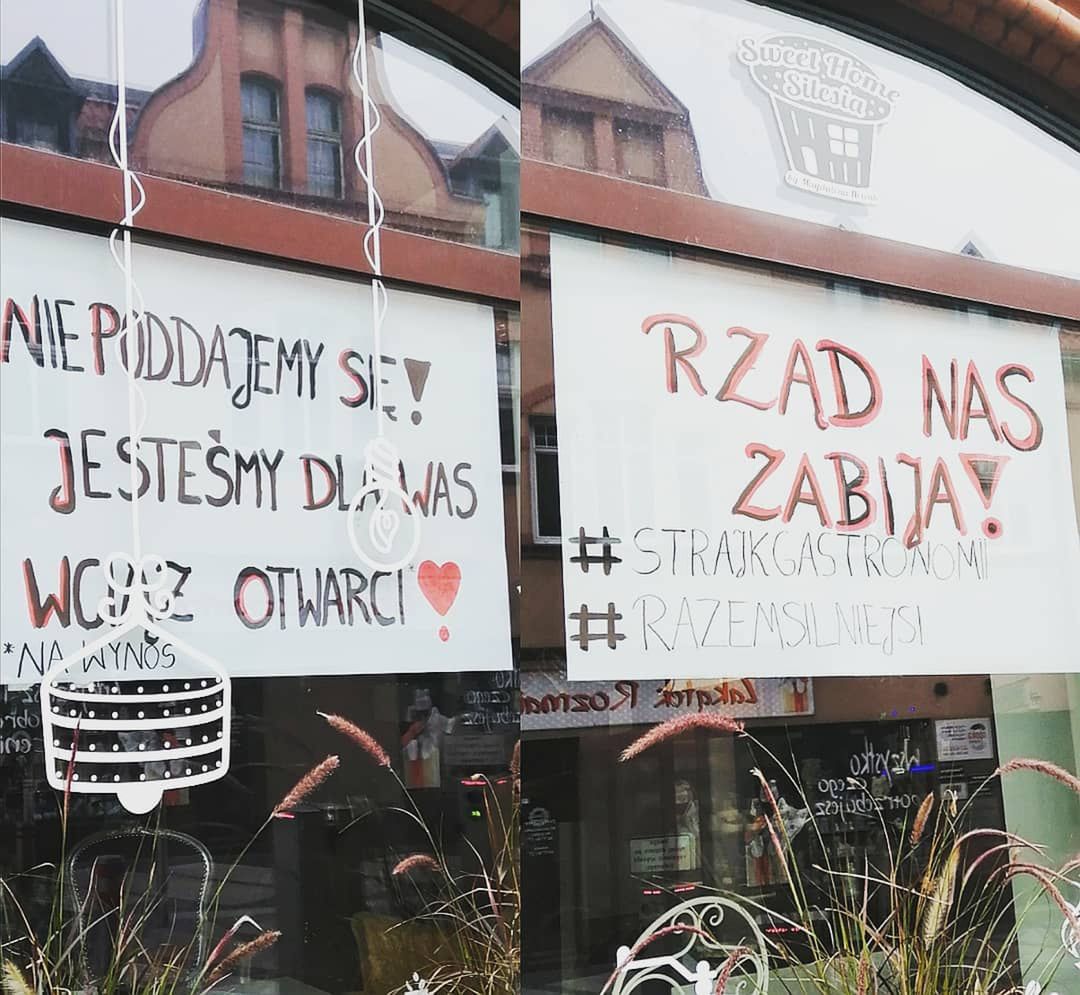 NIE PODDAJEMY SIĘ!
JESTEŚMY DLA WAS
WCIĄŻ OTWARCI*
*NA WYNOS
Sweet Home
Silesia
by Magdalena
RZĄD NAS
ZABIJA!
#STRAJKGASTRONOMII
#RAZEMSILNIEJSI
Zakątek
wszystko
czego
potrzebujesz